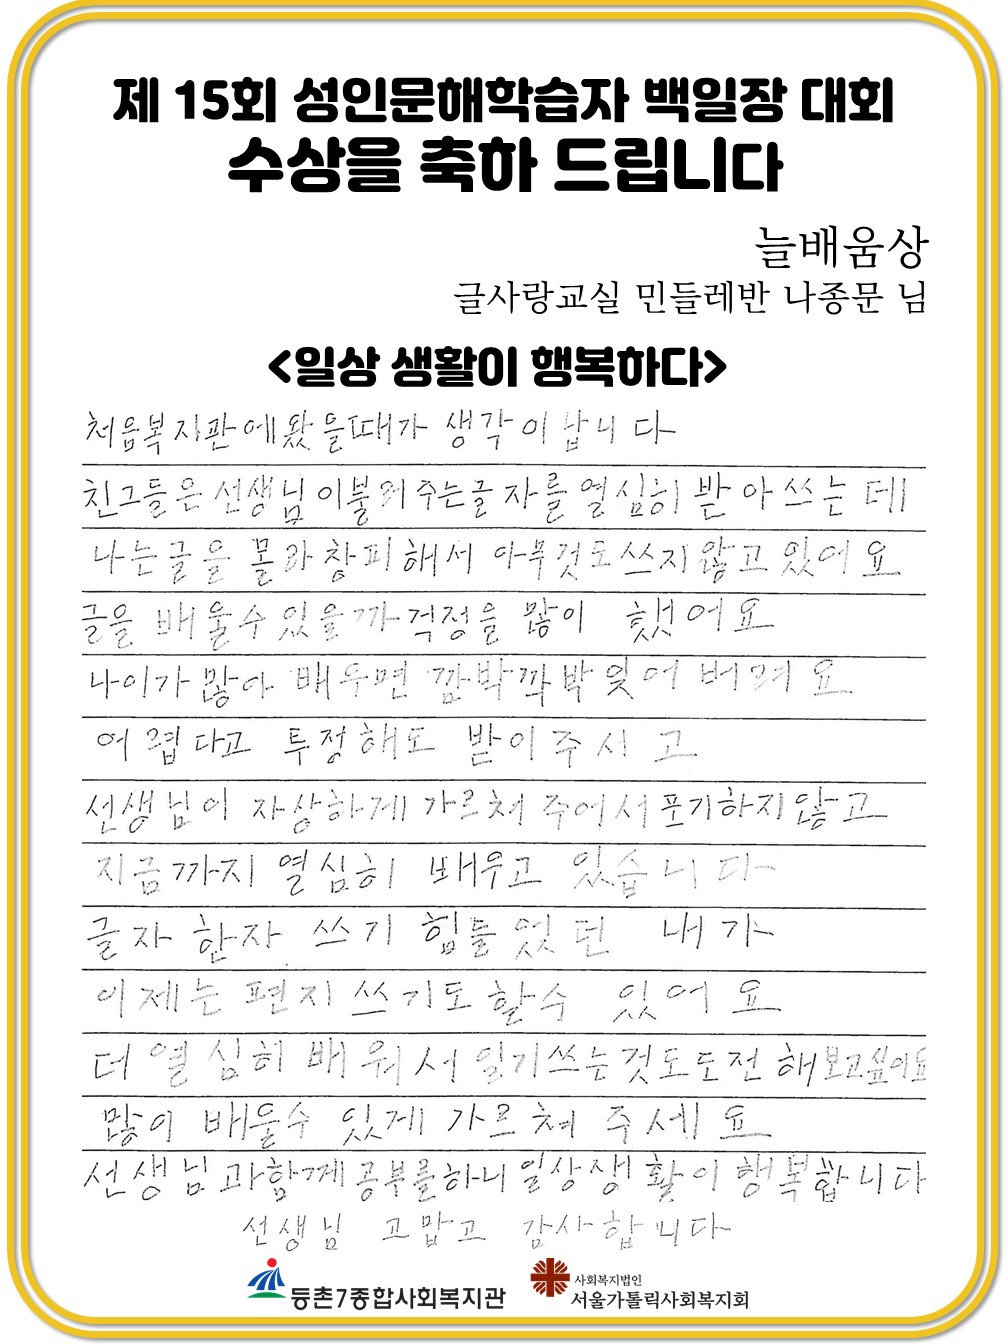 제 15회 성인문해학습자 백일장 대회
수상을 축하 드립니다
늘배움상
글사랑교실 민들레반 나종문 님
<일상 생활이 행복하다>
처음복지관에왔을때가 생각이납니다
친그들은 선생님이불러주는글자를 열심히 받아쓰는데
나는글을 몰라 창피해서 아무것도쓰지않고있어요
글을 배울수있을까 걱정을 많이 했어요
나이가 많아 배우면 깜박깍박잊어버려요
어렵다고 투정해도 받이주시고
선생님이 자상하게 가르쳐 주어서 포기하지않고
지금까지 열심히 배우고 있습니다
글자 한자 쓰기 힘들었던 내가
이제는 편지 쓰기도 할수 있어요
더 열심히 배워서 일기쓰는것도도전해보고싶어요
많이 배울수 있게 가르쳐 주세요
선생님과함께공부를하니일상생활이행복합니다
선생님 고맙고 감사합니다
등촌7종합사회복지관
사회복지법인
서울가톨릭사회복지회